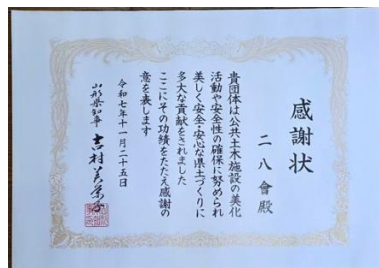 感謝状
二八會殿
貴団体は公共土木施設の美化
活動や安全性の確保に努められ
美しく安全・安心な県土づくりに
多大な貢献をされました
ここにその功績をたたえ感謝の
意を表します
令和七年十一月二十五日
山形県知事 吉村美栄子